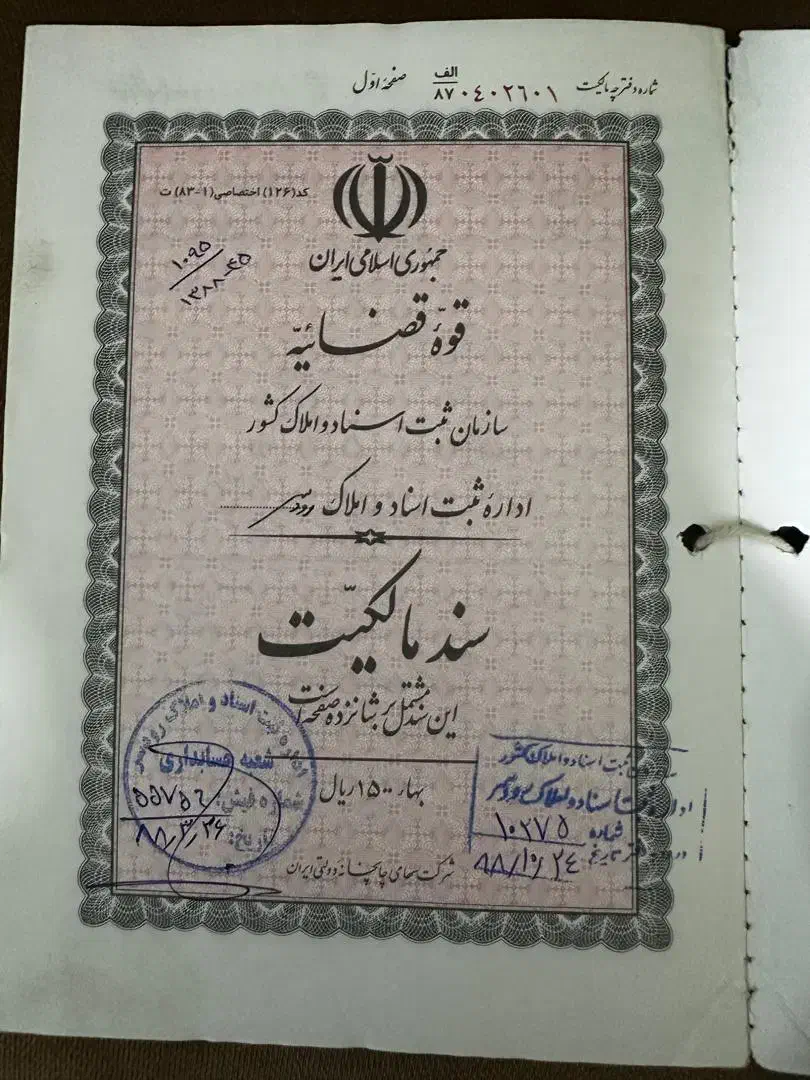 شماره دفترچه مالکیت الف/۸۷ ۰۴۰۲۶۰۱ صفحه اوّل
کد(۱۲۶) اختصاصی(۱-۸۳) ت
۱۰۹۵
جمهوری اسلامی ایران
قوّهٔ قضائیّه
سازمان ثبت اسناد و املاک کشور
ادارهٔ ثبت اسناد و املاک رودسر
سند مالکیّت
این سند مشتمل بر شانزده صفحه است
بهاء ۱۵۰۰ ریال
شرکت سهامی چاپخانهٔ دولتی ایران
اداره ثبت اسناد و املاک رودسر
شعبه حسابداری
شماره فیش: ۵۵۷۵۶
تاریخ: ۸۸/۳/۲۶
ثبت اسناد و املاک کشور
اداره ثبت اسناد و املاک رودسر
شماره ۱۰۲۷۵
دفتر تاریخ ۸۸/۱۰/۲۴